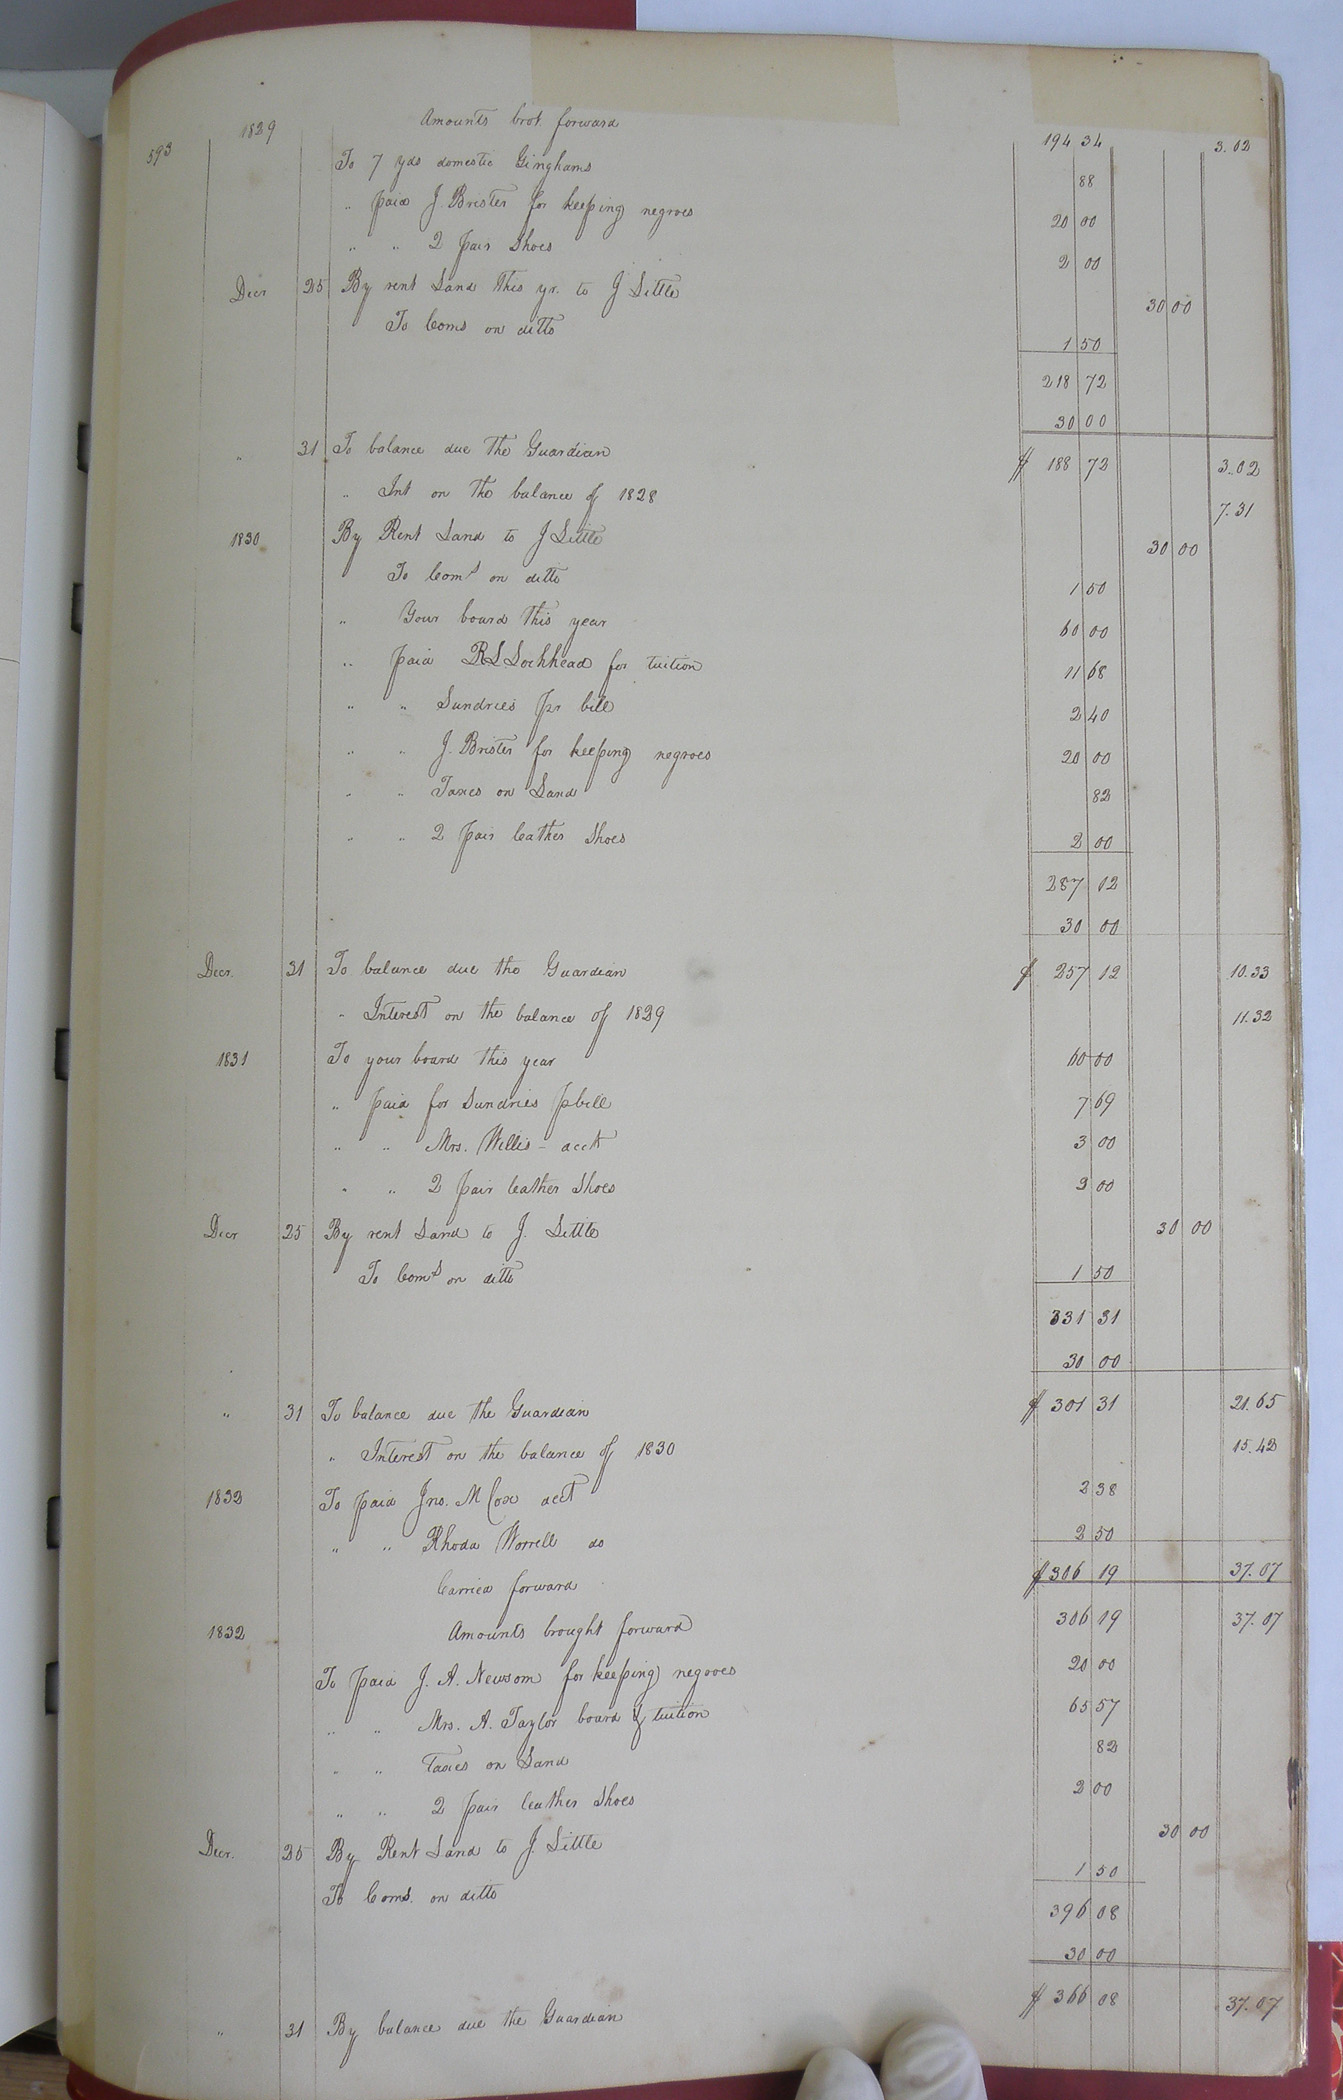 1829 Amounts brot. forward 194 34 3.02
593
To 7 yds domestic Ginghams 88
" paid J. Brister for keeping negroes 20 00
" " 2 pair Shoes 2 00
Decr 25 By rent Land this yr. to J Little 30 00
To Coms on ditto 1 50
218 72
30 00
" 31 To balance due the Guardian $ 188 72 3.02
" Int on the balance of 1828 7.31
1830 By Rent Land to J Little 30 00
To Coms on ditto 1 50
" Your board this year 60 00
" paid R L Lochhead for tuition 11 68
" " Sundries pr bill 2 40
" " J. Brister for keeping negroes 20 00
" " Taxes on Land 82
" " 2 pair leather Shoes 2 00
287 12
30 00
Decr. 31 To balance due the Guardian $ 257 12 10.33
" Interest on the balance of 1829 11.32
1831 To your board this year 60 00
" paid for Sundries p bill 7 69
" " Mrs. Willis - acct 3 00
" " 2 pair leather Shoes 2 00
Decr 25 By rent Land to J. Little 30 00
To Coms on ditto 1 50
331 31
30 00
" 31 To balance due the Guardian $ 301 31 21.65
" Interest on the balance of 1830 15.42
1832 To paid Jno. M Cox acct 2 38
" " Rhoda Worrell do 2 50
Carried forward $ 306 19 37.07
1832 Amounts brought forward 306 19 37.07
To paid J. A. Newsom for keeping negroes 20 00
" " Mrs. A. Taylor board & tuition 65 57
" " Taxes on Land 82
" " 2 pair leather Shoes 2 00
Decr. 25 By Rent Land to J. Little 30 00
To Coms. on ditto 1 50
396 08
30 00
" 31 By balance due the Guardian $ 366 08 37.07